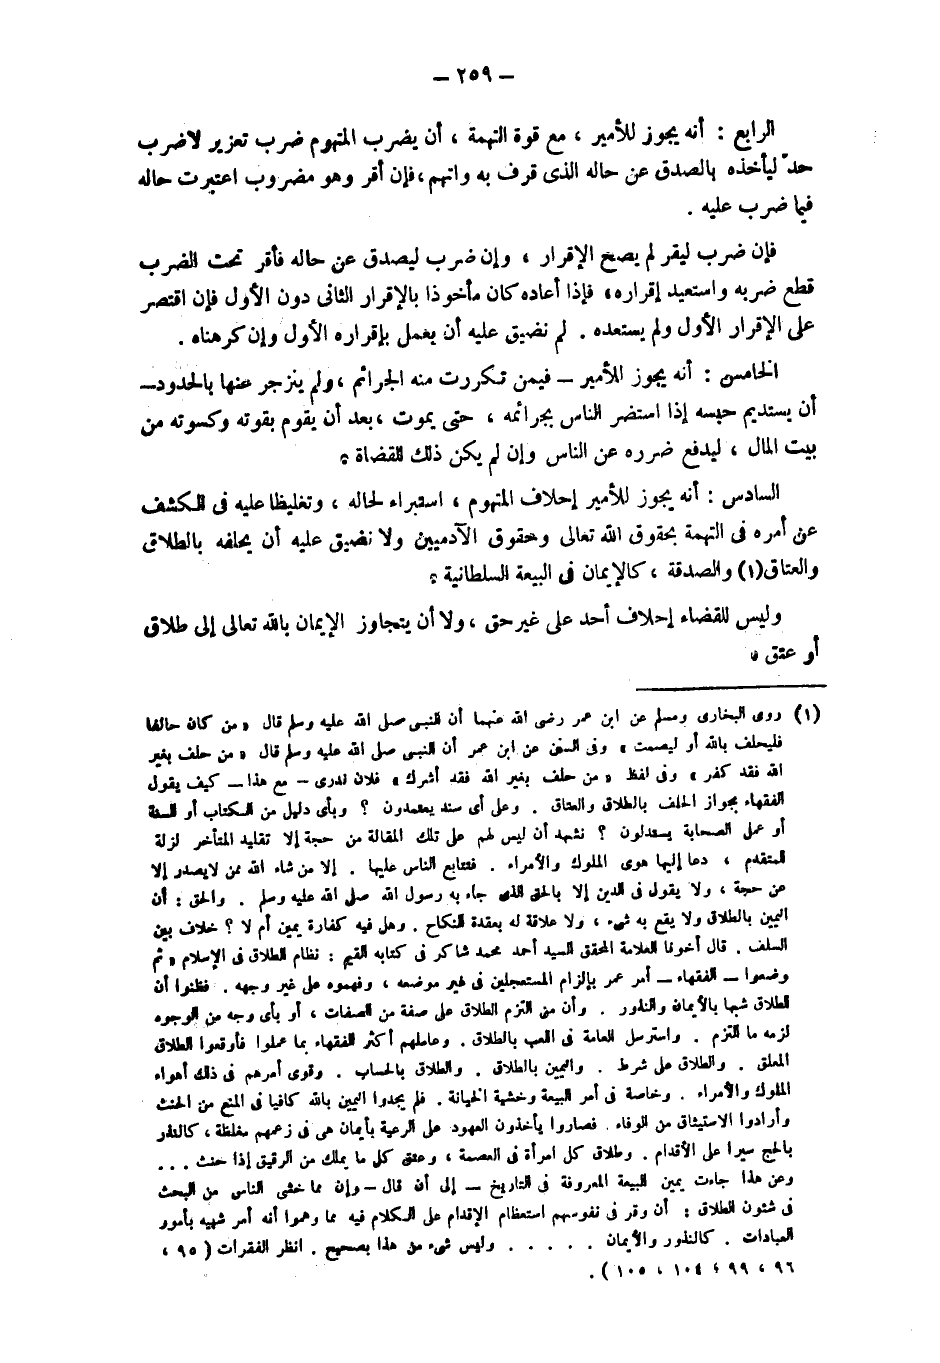 — ٢٥٩ —
الرابع : أنه يجوز للأمير ، مع قوة التهمة ، أن يضرب المتهوم ضرب تعزير لاضرب
حدّ ليأخذه بالصدق عن حاله الذى قرف به واتهم ، فإن أقر وهو مضروب اعتبرت حاله
فيما ضرب عليه .
فإن ضرب ليقر لم يصح الإقرار ، وإن ضرب ليصدق عن حاله فأقر تحت الضرب
قطع ضربه واستعيد إقراره، فإذا أعاده كان مأخوذا بالإقرار الثانى دون الأول فإن اقتصر
على الإقرار الأول ولم يستعده . لم نضيق عليه أن يعمل بإقراره الأول وإن كرهناه .
الخامس : أنه يجوز للأمير — فيمن تكررت منه الجرائم ، ولم ينزجر عنها بالحدود —
أن يستديم حبسه إذا استضر الناس بجرائمه ، حتى يموت ، بعد أن يقوم بقوته وكسوته من
بيت المال ، ليدفع ضرره عن الناس وإن لم يكن ذلك للقضاة .
السادس : أنه يجوز للأمير إحلاف المتهوم ، استبراء لحاله ، وتغليظا عليه فى الكشف
عن أمره فى التهمة بحقوق الله تعالى وحقوق الآدميين ولا نضيق عليه أن يحلفه بالطلاق
والعتاق(١) والصدقة ، كالإيمان فى البيعة السلطانية .
وليس للقضاء إحلاف أحد على غير حق ، ولا أن يتجاوز الإيمان بالله تعالى إلى طلاق
أو عتق .
(١) روى البخارى ومسلم عن ابن عمر رضى الله عنهما أن النبى صلى الله عليه وسلم قال « من كان حالفا
فليحلف بالله أو ليصمت » وفى السنن عن ابن عمر أن النبى صلى الله عليه وسلم قال « من حلف بغير
الله فقد كفر » وفى لفظ « من حلف بغير الله فقد أشرك » فلان ندرى — مع هذا — كيف يقول
الفقهاء بجواز الحلف بالطلاق والعتاق . وعلى أى سند يعتمدون ؟ وبأى دليل من الكتاب أو السنة
أو عمل الصحابة يستدلون ؟ نشهد أن ليس لهم على تلك المقالة من حجة إلا تقليد المتأخر لزلة
المتقدم ، دعا إليها هوى الملوك والأمراء . فتتابع الناس عليها . إلا من شاء الله ممن لايصدر إلا
عن حجة ، ولا يقول فى الدين إلا بالحق الذى جاء به رسول الله صلى الله عليه وسلم . والحق : أن
اليمين بالطلاق ولا يقع به شىء ، ولا علاقة له بعقدة النكاح . وهل فيه كفارة يمين أم لا ؟ خلاف بين
السلف . قال أخونا العلامة المحقق السيد أحمد محمد شاكر فى كتابه القيم : نظام الطلاق فى الإسلام « ثم
وضعوا — الفقهاء — أمر عمر بإلزام المستعجلين فى غير موضعه ، وفهموه على غير وجهه . فظنوا أن
الطلاق شبها بالأيمان والنذور . وأن من التزم الطلاق على صفة من الصفات ، أو بأى وجه من الوجوه
لزمه ما التزم . واسترسل العامة فى اللعب بالطلاق . وعاملهم أكثر الفقهاء بما عملوا فأوقعوا الطلاق
المعلق . والطلاق على شرط . واليمين بالطلاق . والطلاق بالحساب . وقوى أمرهم فى ذلك أهواء
الملوك والأمراء . وخاصة فى أمر البيعة وخشية الخيانة . فلم يجدوا اليمين بالله كافيا فى المنع من الحنث
وأرادوا الاستيثاق من الوفاء . فصاروا يأخذون العهود على الرعية بأيمان هى فى زعمهم مغلظة ، كالنذر
بالحج سيرا على الأقدام . وطلاق كل امرأة فى العصمة ، وعتق كل ما يملك من الرقيق إذا حنث ...
وعن هذا جاءت يمين البيعة المعروفة فى التاريخ — إلى أن قال — وإن مما خشى الناس من البحث
فى شئون الطلاق : أن وقر فى نفوسهم استعظام الإقدام على الكلام فيه مما وهموا أنه أمر شبيه بأمور
العبادات . كالنذور والأيمان . . . . . وليس شىء من هذا بصحيح . انظر الفقرات ( ٩٥ ،
٩٦ ، ٩٩ ، ١٠٤ ، ١٠٥ ) .